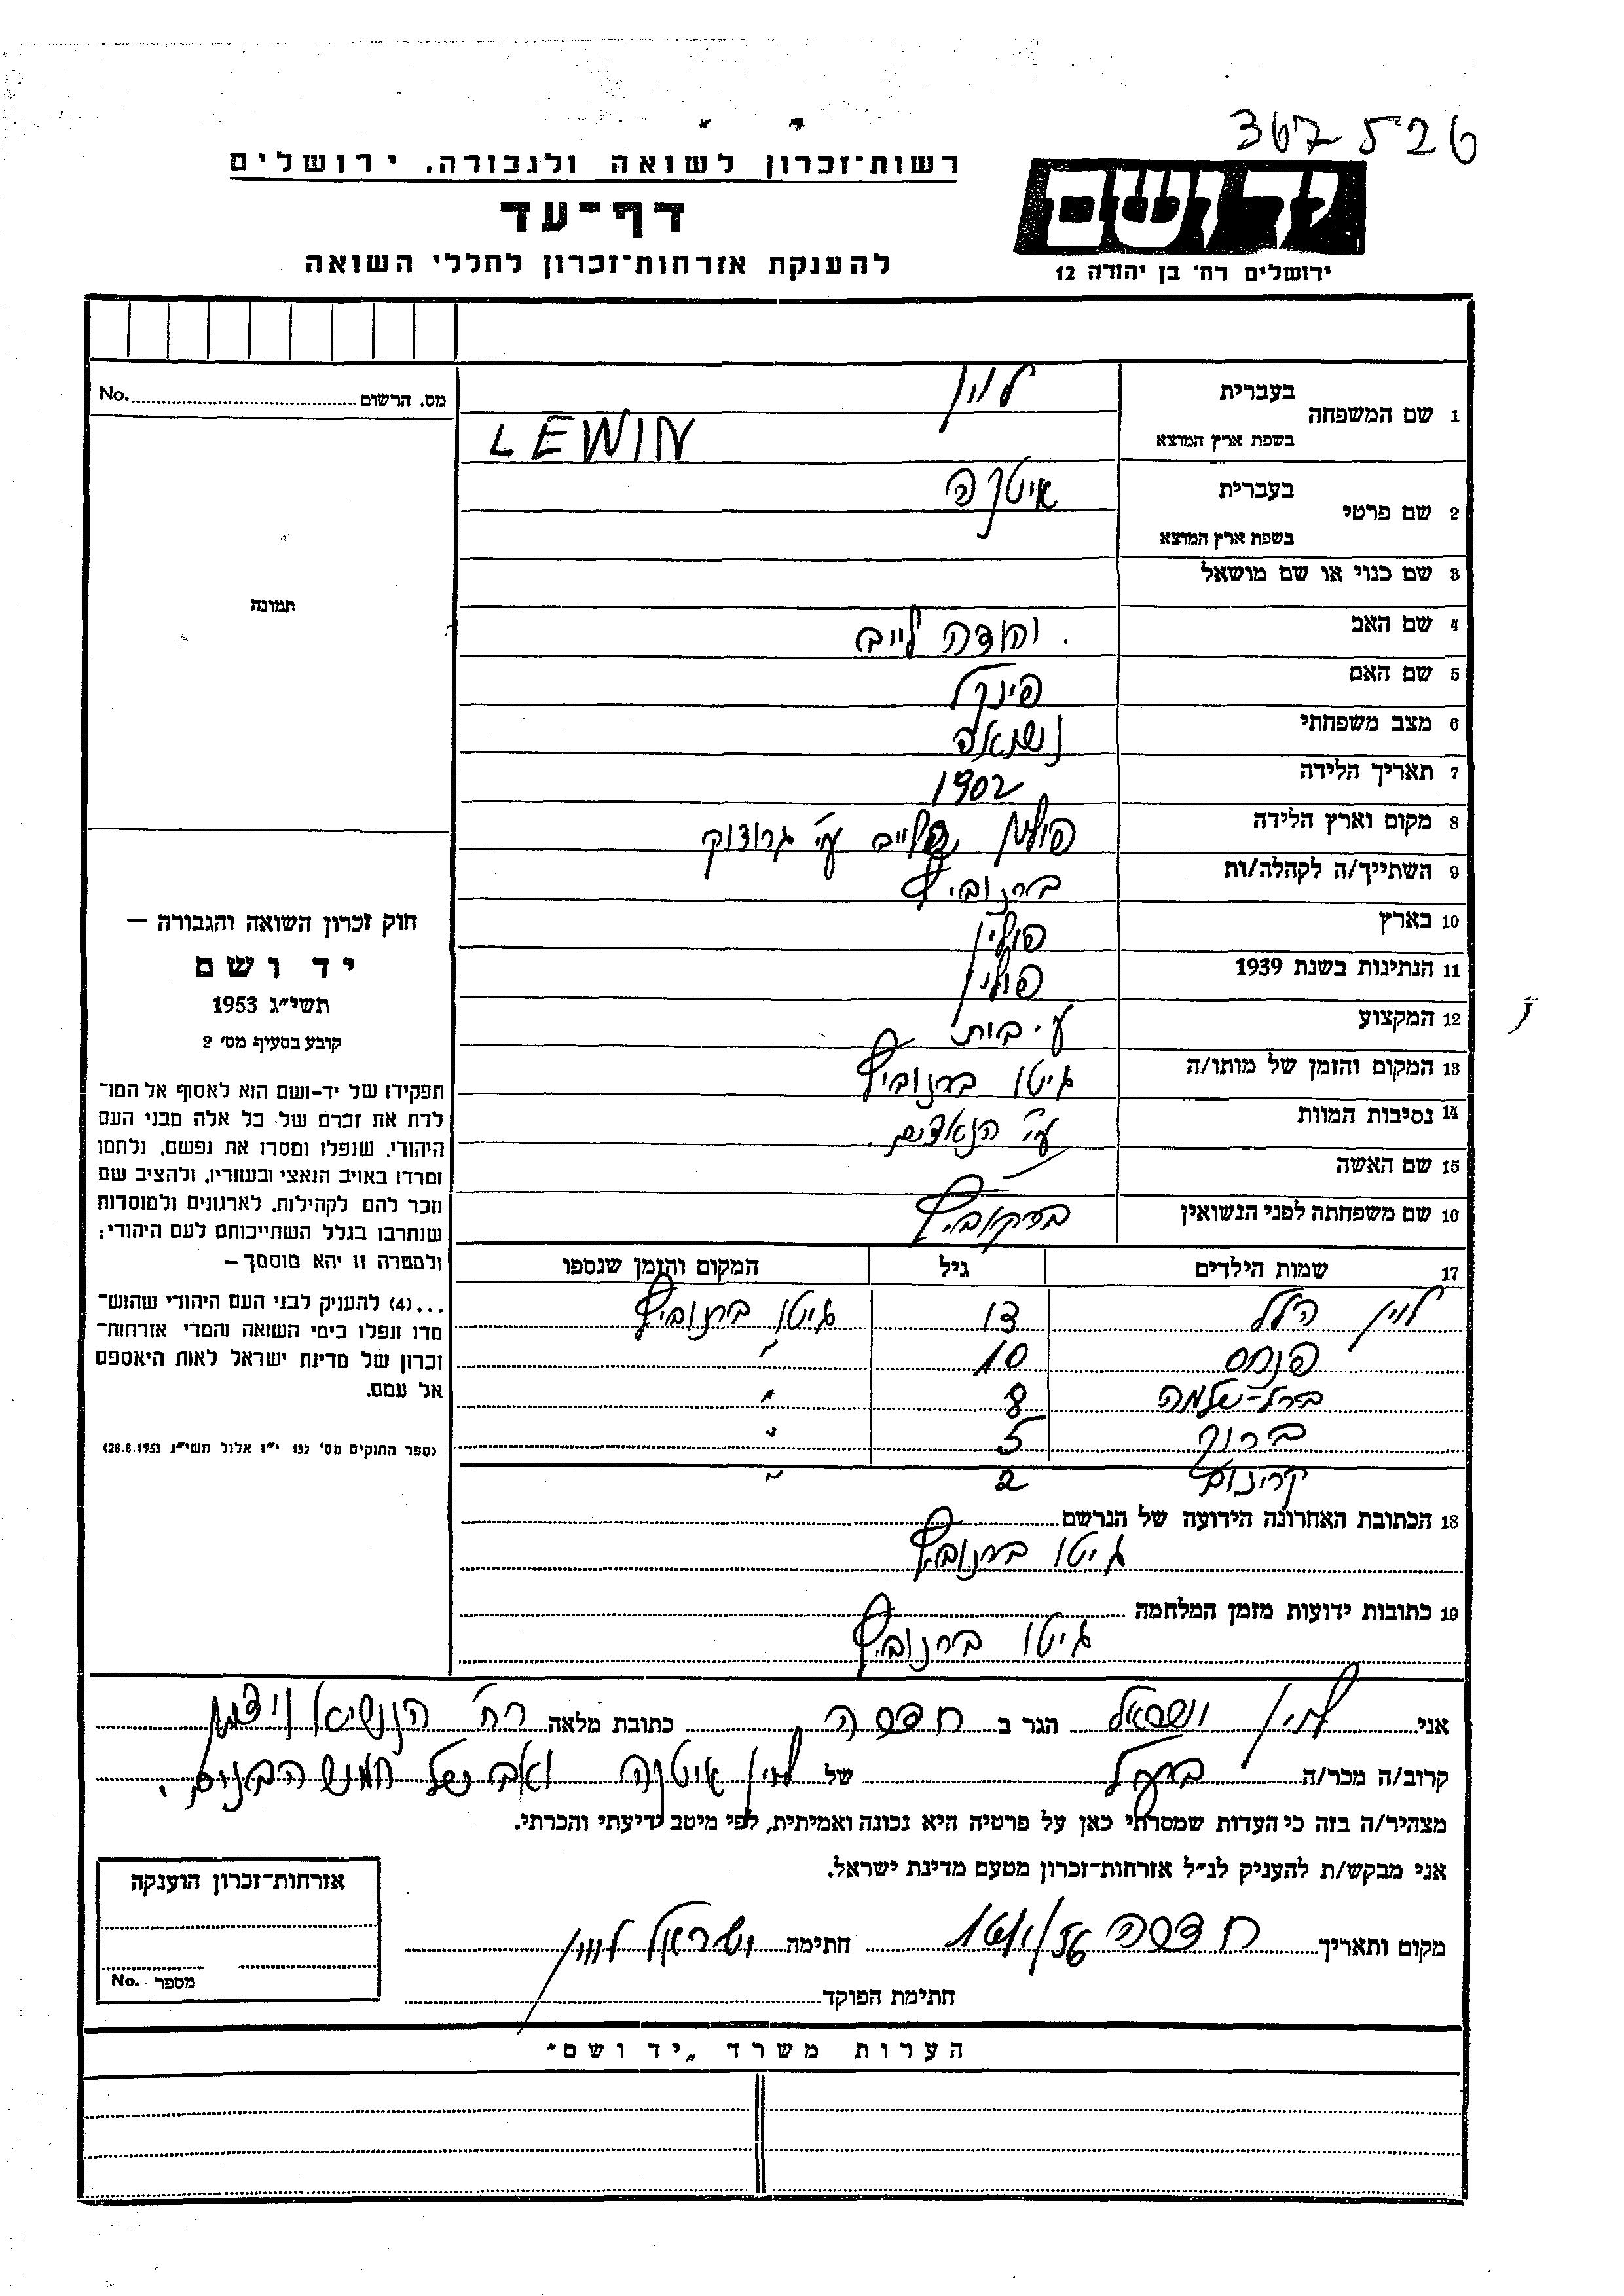 367526
רשות־זכרון לשואה ולגבורה, ירושלים
יד ושם
דף־עד
ירושלים רח' בן יהודה 12
להענקת אזרחות־זכרון לחללי השואה
מס. הרשום No.
1 שם המשפחה בעברית לוין
בשפת ארץ המוצא LEWIN
2 שם פרטי בעברית איטקה
בשפת ארץ המוצא
3 שם כנוי או שם מושאל
תמונה
4 שם האב יהודה לייב
5 שם האם פינקל
6 מצב משפחתי נשואה
7 תאריך הלידה 1902
8 מקום וארץ הלידה פולין ע"י גרודוק
9 השתייך/ה לקהלה/ות ברנוביץ
10 בארץ פולין
11 הנתינות בשנת 1939 פולין
12 המקצוע ע. בית
13 המקום והזמן של מותו/ה גיטו ברנוביץ
14 נסיבות המוות ע"י הנאצים.
15 שם האשה
16 שם משפחתה לפני הנשואין ברקוביץ
חוק זכרון השואה והגבורה –
יד ושם
תשי"ג 1953
קובע בסעיף מס' 2
תפקידו של יד-ושם הוא לאסוף אל המו־
לדת את זכרם של כל אלה מבני העם
היהודי, שנפלו ומסרו את נפשם, נלחמו
ומרדו באויב הנאצי ובעוזריו, ולהציב שם
וזכר להם לקהילות, לארגונים ולמוסדות
שנחרבו בגלל השתייכותם לעם היהודי;
ולמטרה זו יהא מוסמך –
...(4) להעניק לבני העם היהודי שהוש־
מדו ונפלו בימי השואה והמרי אזרחות־
זכרון של מדינת ישראל לאות היאספם
אל עמם.
(ספר החוקים מס' 132 י"ז אלול תשי"ג 28.8.1953)
17 שמות הילדים גיל המקום והזמן שנספו
לוין הלל 13 גיטו ברנוביץ
פנחס 10 "
ברל-שלמה 8 "
ברוך 5 "
2 "
18 הכתובת האחרונה הידועה של הנרשם
גיטו ברנוביץ
19 כתובות ידועות מזמן המלחמה
גיטו ברנוביץ
אני לוין ישראל הגר ב חדרה כתובת מלאה רח' הנשיא ויצמן
קרוב/ה מכר/ה בעל של לוין איטקה ואב של חמש הבנים.
מצהיר/ה בזה כי העדות שמסרתי כאן על פרטיה היא נכונה ואמיתית, לפי מיטב ידיעתי והכרתי.
אני מבקש/ת להעניק לנ"ל אזרחות־זכרון מטעם מדינת ישראל.
מקום ותאריך חדרה חתימה ישראל לוין
חתימת הפוקד
אזרחות־זכרון הוענקה
מספר No.
הערות משרד „יד ושם"